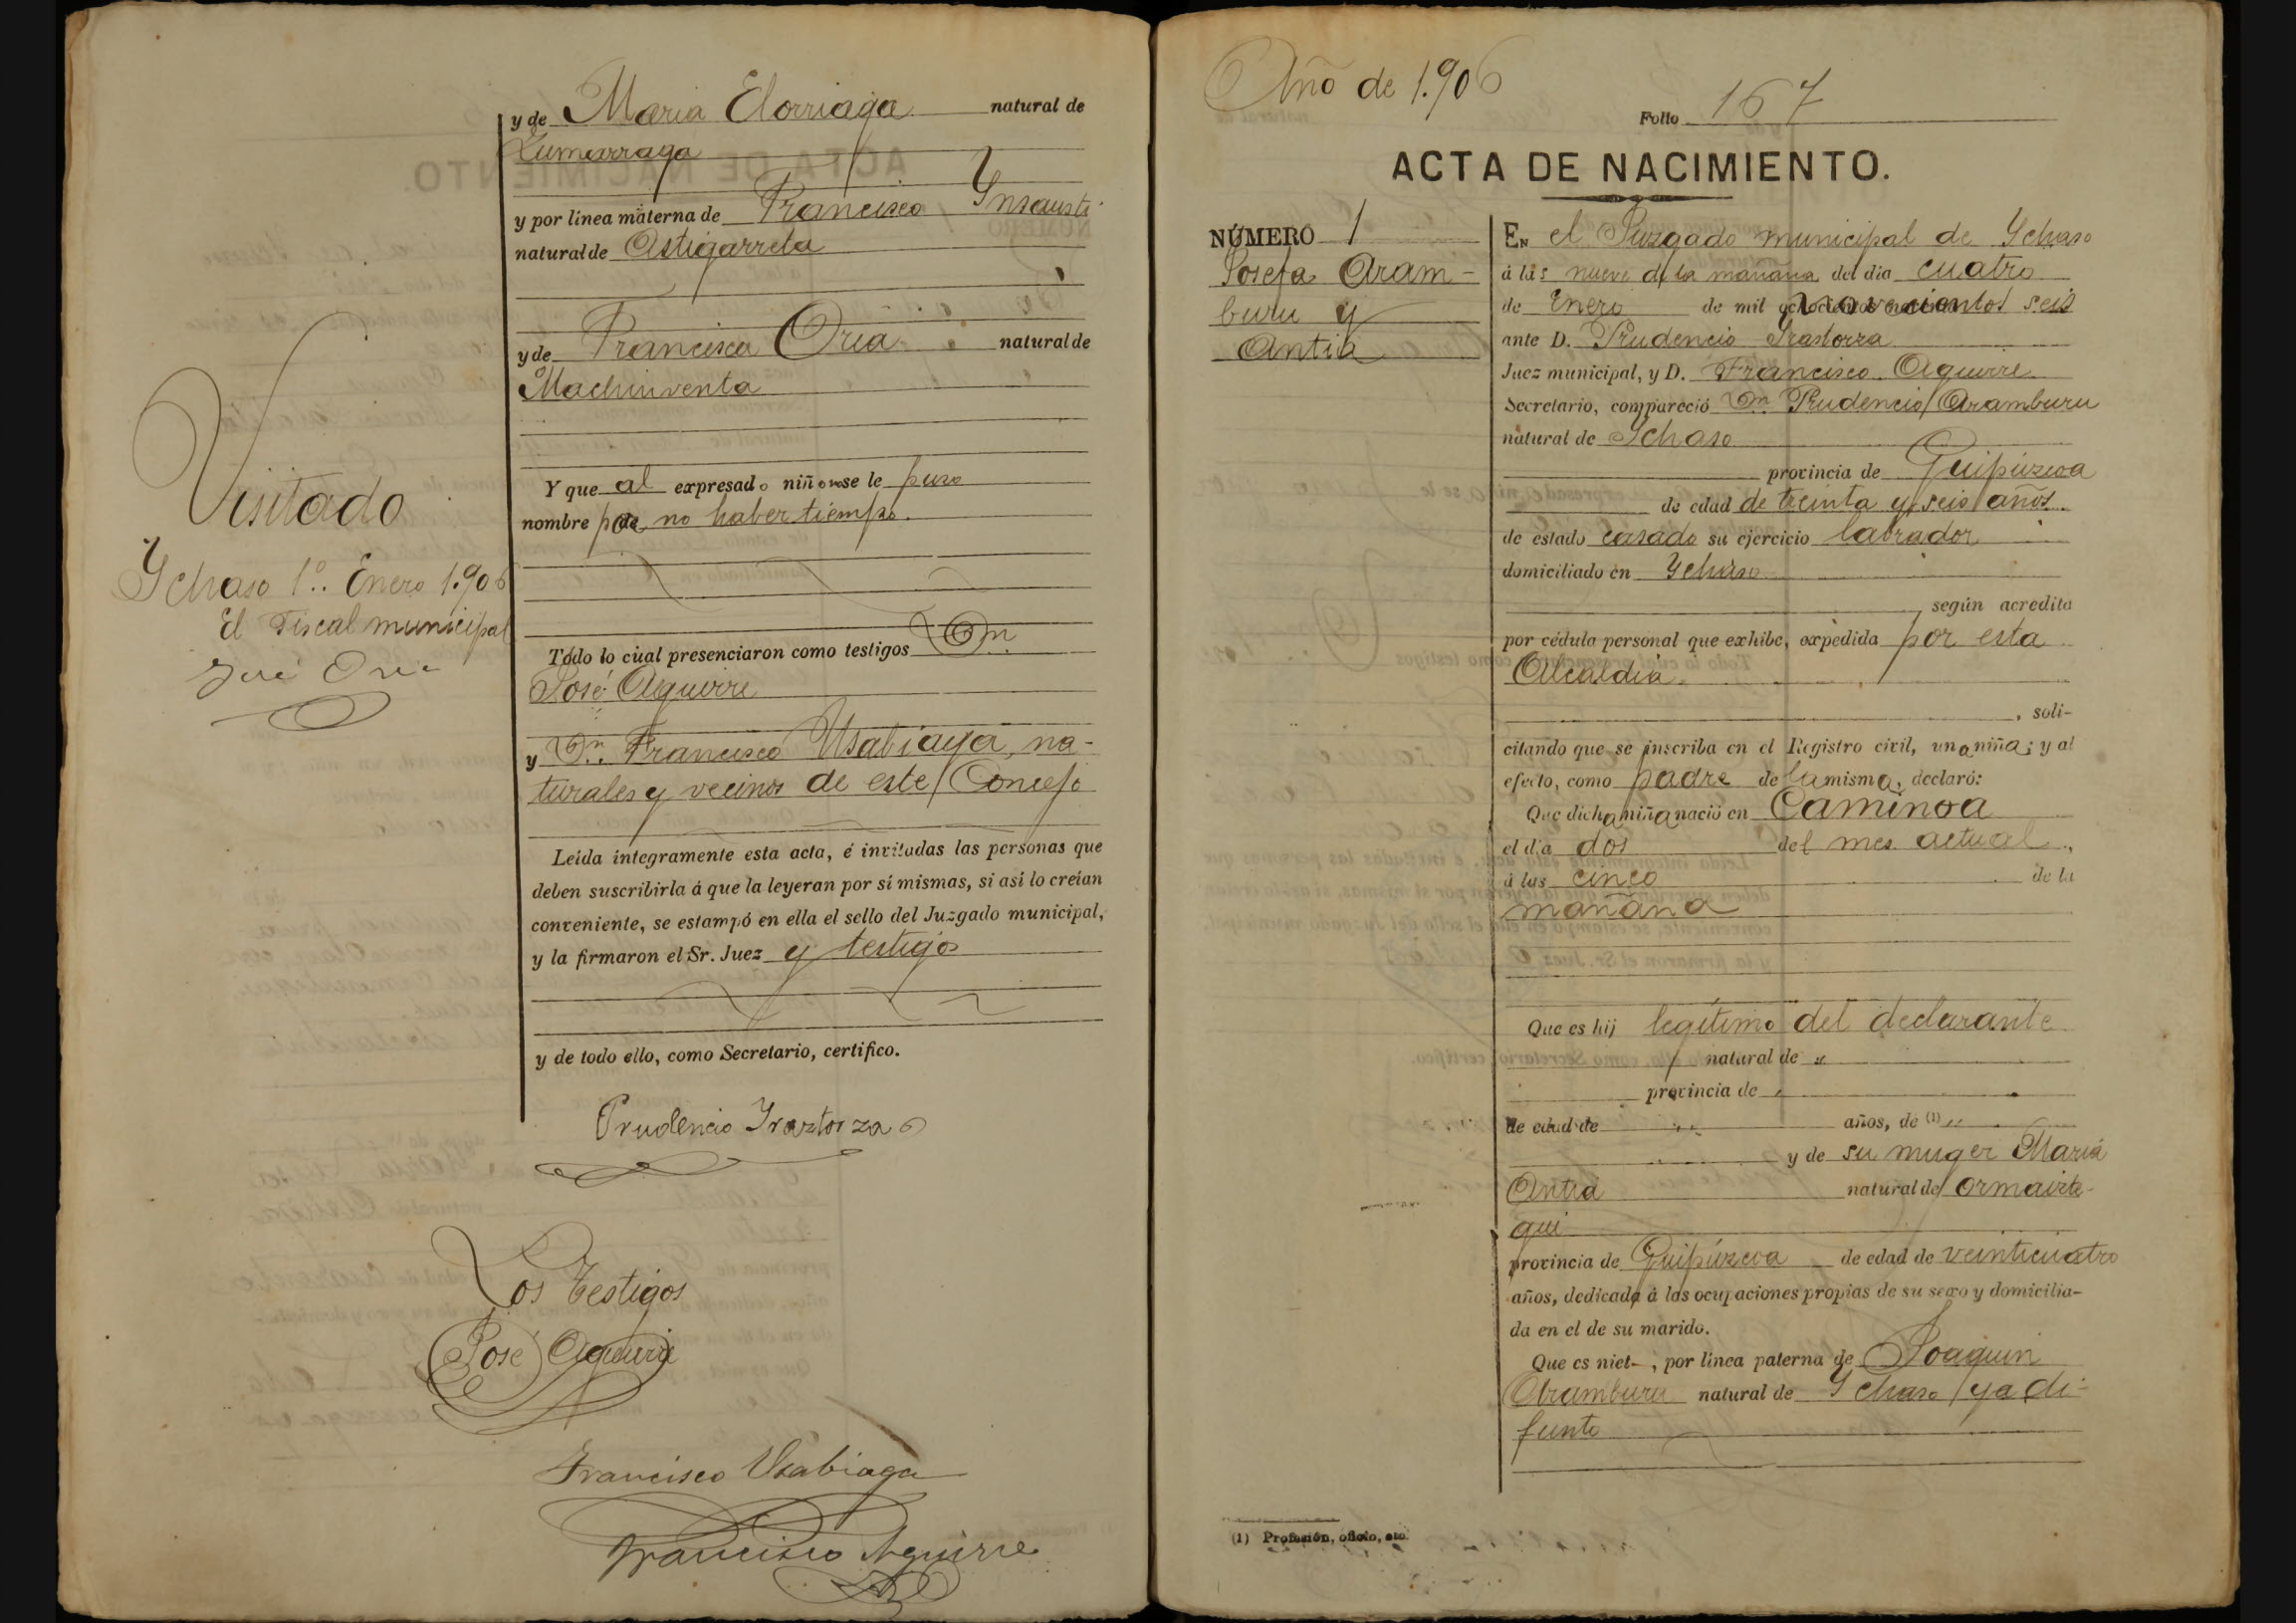 y de Maria Elorriaga natural de
Zumarraga
y por línea materna de Francisco Ynsausti
natural de Astigarreta
y de Francisca Oria natural de
Machinventa
Y que al expresado niño no se le puso
nombre por no haber tiempo.
Todo lo cual presenciaron como testigos Dn
José Aguirre
y Dn. Francisco Usabiaga, na-
turales y vecinos de este Concejo
Leída íntegramente esta acta, é invitadas las personas que
deben suscribirla á que la leyeran por sí mismas, si así lo creían
conveniente, se estampó en ella el sello del Juzgado municipal,
y la firmaron el Sr. Juez y testigos
y de todo ello, como Secretario, certifico.
Prudencio Yraztorza
Los Testigos
José Aguirre
Francisco Usabiaga
Francisco Aguirre
Visitado
Ychaso 1º. Enero 1.906
El Fiscal municipal
José Oria
Año de 1.906
Folio 167
ACTA DE NACIMIENTO.
NÚMERO 1
Josefa Aram-
buru y
Antia
En el Juzgado municipal de Ychaso
á las nueve de la mañana del dia cuatro
de Enero de mil novecientos seis
ante D. Prudencio Yrastorza
Juez municipal, y D. Francisco Aguirre
Secretario, compareció Dn Prudencio Aramburu
natural de Ychaso
provincia de Guipúzcoa
de edad de treinta y seis años
de estado casado su ejercicio labrador
domiciliado en Ychaso
según acredita
por cédula personal que exhibe, expedida por esta
Alcaldia
, soli-
citando que se inscriba en el Registro civil, una niña; y al
efecto, como padre de la misma, declaró:
Que dicha niña nació en Caminoa
el dia dos del mes actual,
á las cinco de la
mañana
Que es hij legítimo del declarante
natural de "
provincia de "
de edad de " años, de (1) "
y de su muger Maria
Antia natural de Ormaizte-
gui
provincia de Guipúzcoa de edad de veinticuatro
años, dedicada á las ocupaciones propias de su sexo y domicilia-
da en el de su marido.
Que es niet-, por línea paterna de Joaquin
Aramburu natural de Ychaso ya di-
funto
(1) Profesión, oficio, etc.